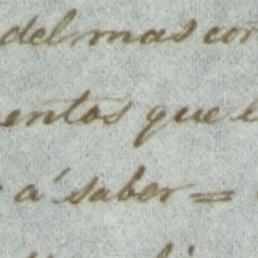 del mas con
entos que
a saber =